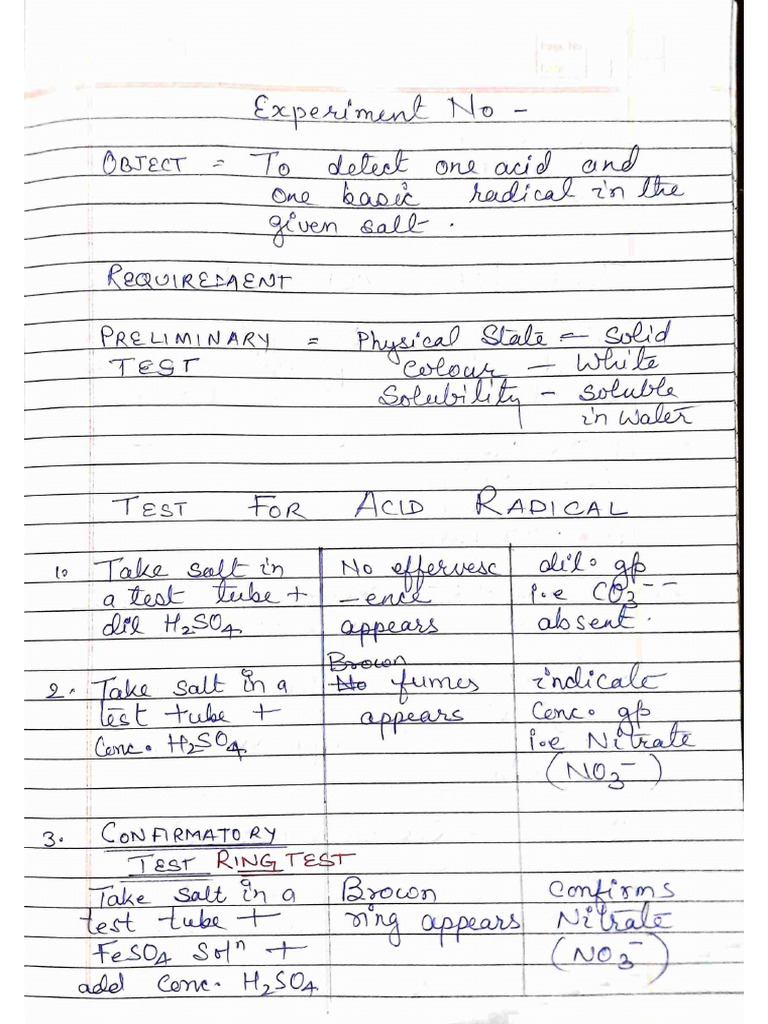 Page No.
Date
Experiment No -
OBJECT = To detect one acid and
one basic radical in the
given salt.
REQUIREMENT
PRELIMINARY = Physical State - Solid
TEST Colour - White
Solubility - Soluble
in Water
TEST FOR ACID RADICAL
1. Take salt in No effervesc dil. gp
a test tube + -ence i.e CO3--
dil H2SO4 appears absent.
Brown
2. Take salt in a No fumes indicate
test tube + appears Conc. gp
Conc. H2SO4 i.e Nitrate
(NO3-)
3. CONFIRMATORY
TEST RING TEST
Take salt in a Brown Confirms
test tube + ring appears Nitrate
FeSO4 Soln + (NO3-)
add Conc. H2SO4